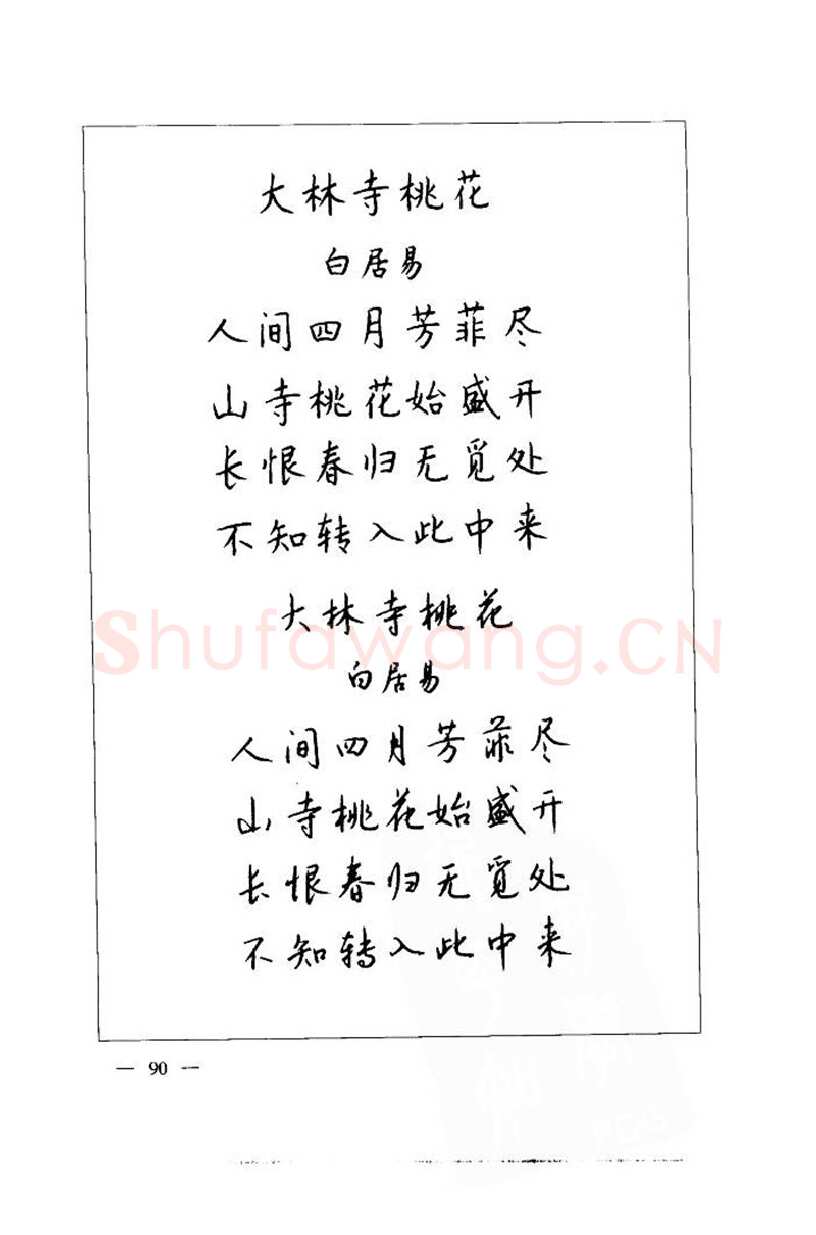 大林寺桃花
白居易
人间四月芳菲尽
山寺桃花始盛开
长恨春归无觅处
不知转入此中来
大林寺桃花
白居易
人间四月芳菲尽
山寺桃花始盛开
长恨春归无觅处
不知转入此中来
Shufawang.CN
— 90 —